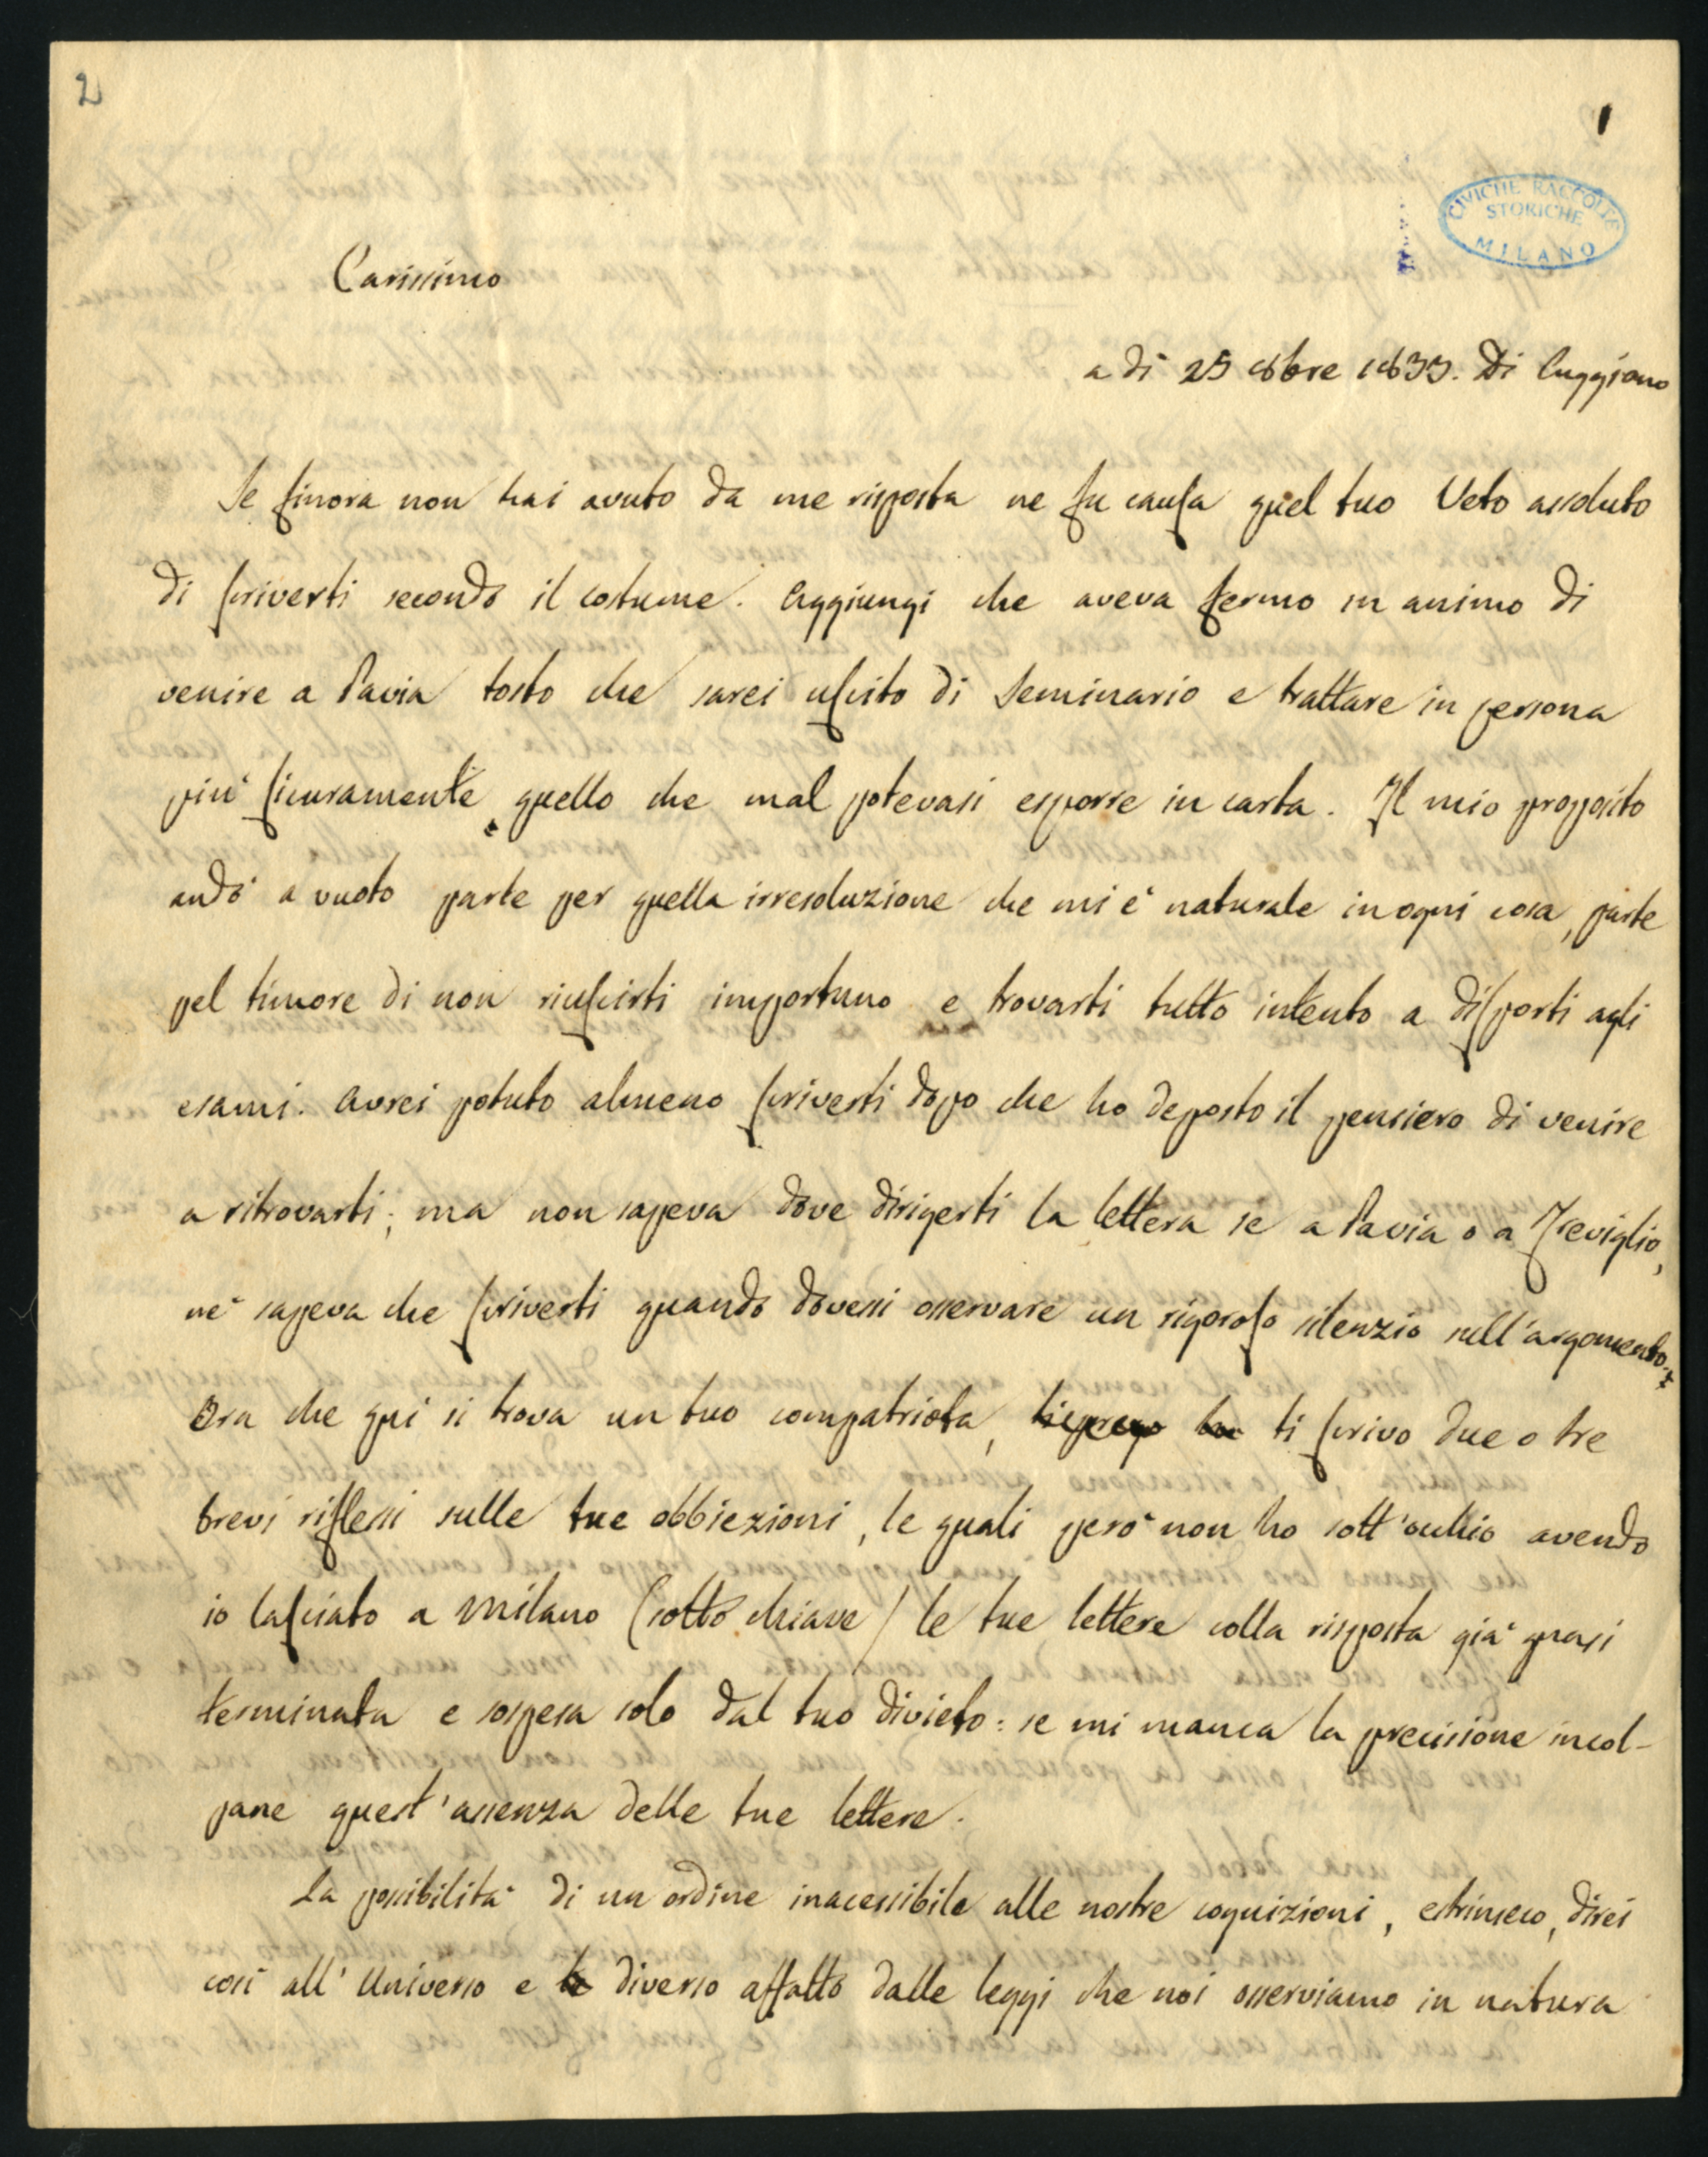 2
1
CIVICHE RACCOLTE
STORICHE
MILANO
Carissimo
a di 25 8bre 1833. Di Cuggiono
Se finora non hai avuto da me risposta ne fu causa quel tuo Veto assoluto
di scriverti secondo il costume. Aggiungi che aveva fermo in animo di
venire a Pavia tosto che sarei uscito di Seminario e trattare in persona
più sicuramente quello che mal potevasi esporre in carta. Il mio proposito
andò a vuoto parte per quella irresoluzione che mi è naturale in ogni cosa, parte
pel timore di non riuscirti importuno e trovarti tutto intento a disporti agli
esami. Avrei potuto almeno scriverti dopo che ho deposto il pensiero di venire
a ritrovarti; ma non sapeva dove dirigerti la lettera se a Pavia o a Treviglio,
nè sapeva che scriverti quando dovessi osservare un rigoroso silenzio sull'argomento.
Ora che qui si trova un tuo compatriota, ti scrivo due o tre
brevi riflessi sulle tue obbiezioni, le quali però non ho sott'occhio avendo
io lasciato a Milano (sotto chiave) le tue lettere colla risposta già quasi
terminata e sospesa solo dal tuo divieto: se mi manca la precisione incol-
pane quest'assenza delle tue lettere.
La possibilità di un ordine inacessibile alle nostre cognizioni, estrinseco, direi
così all'Universo e diverso affatto dalle leggi che noi osserviamo in natura